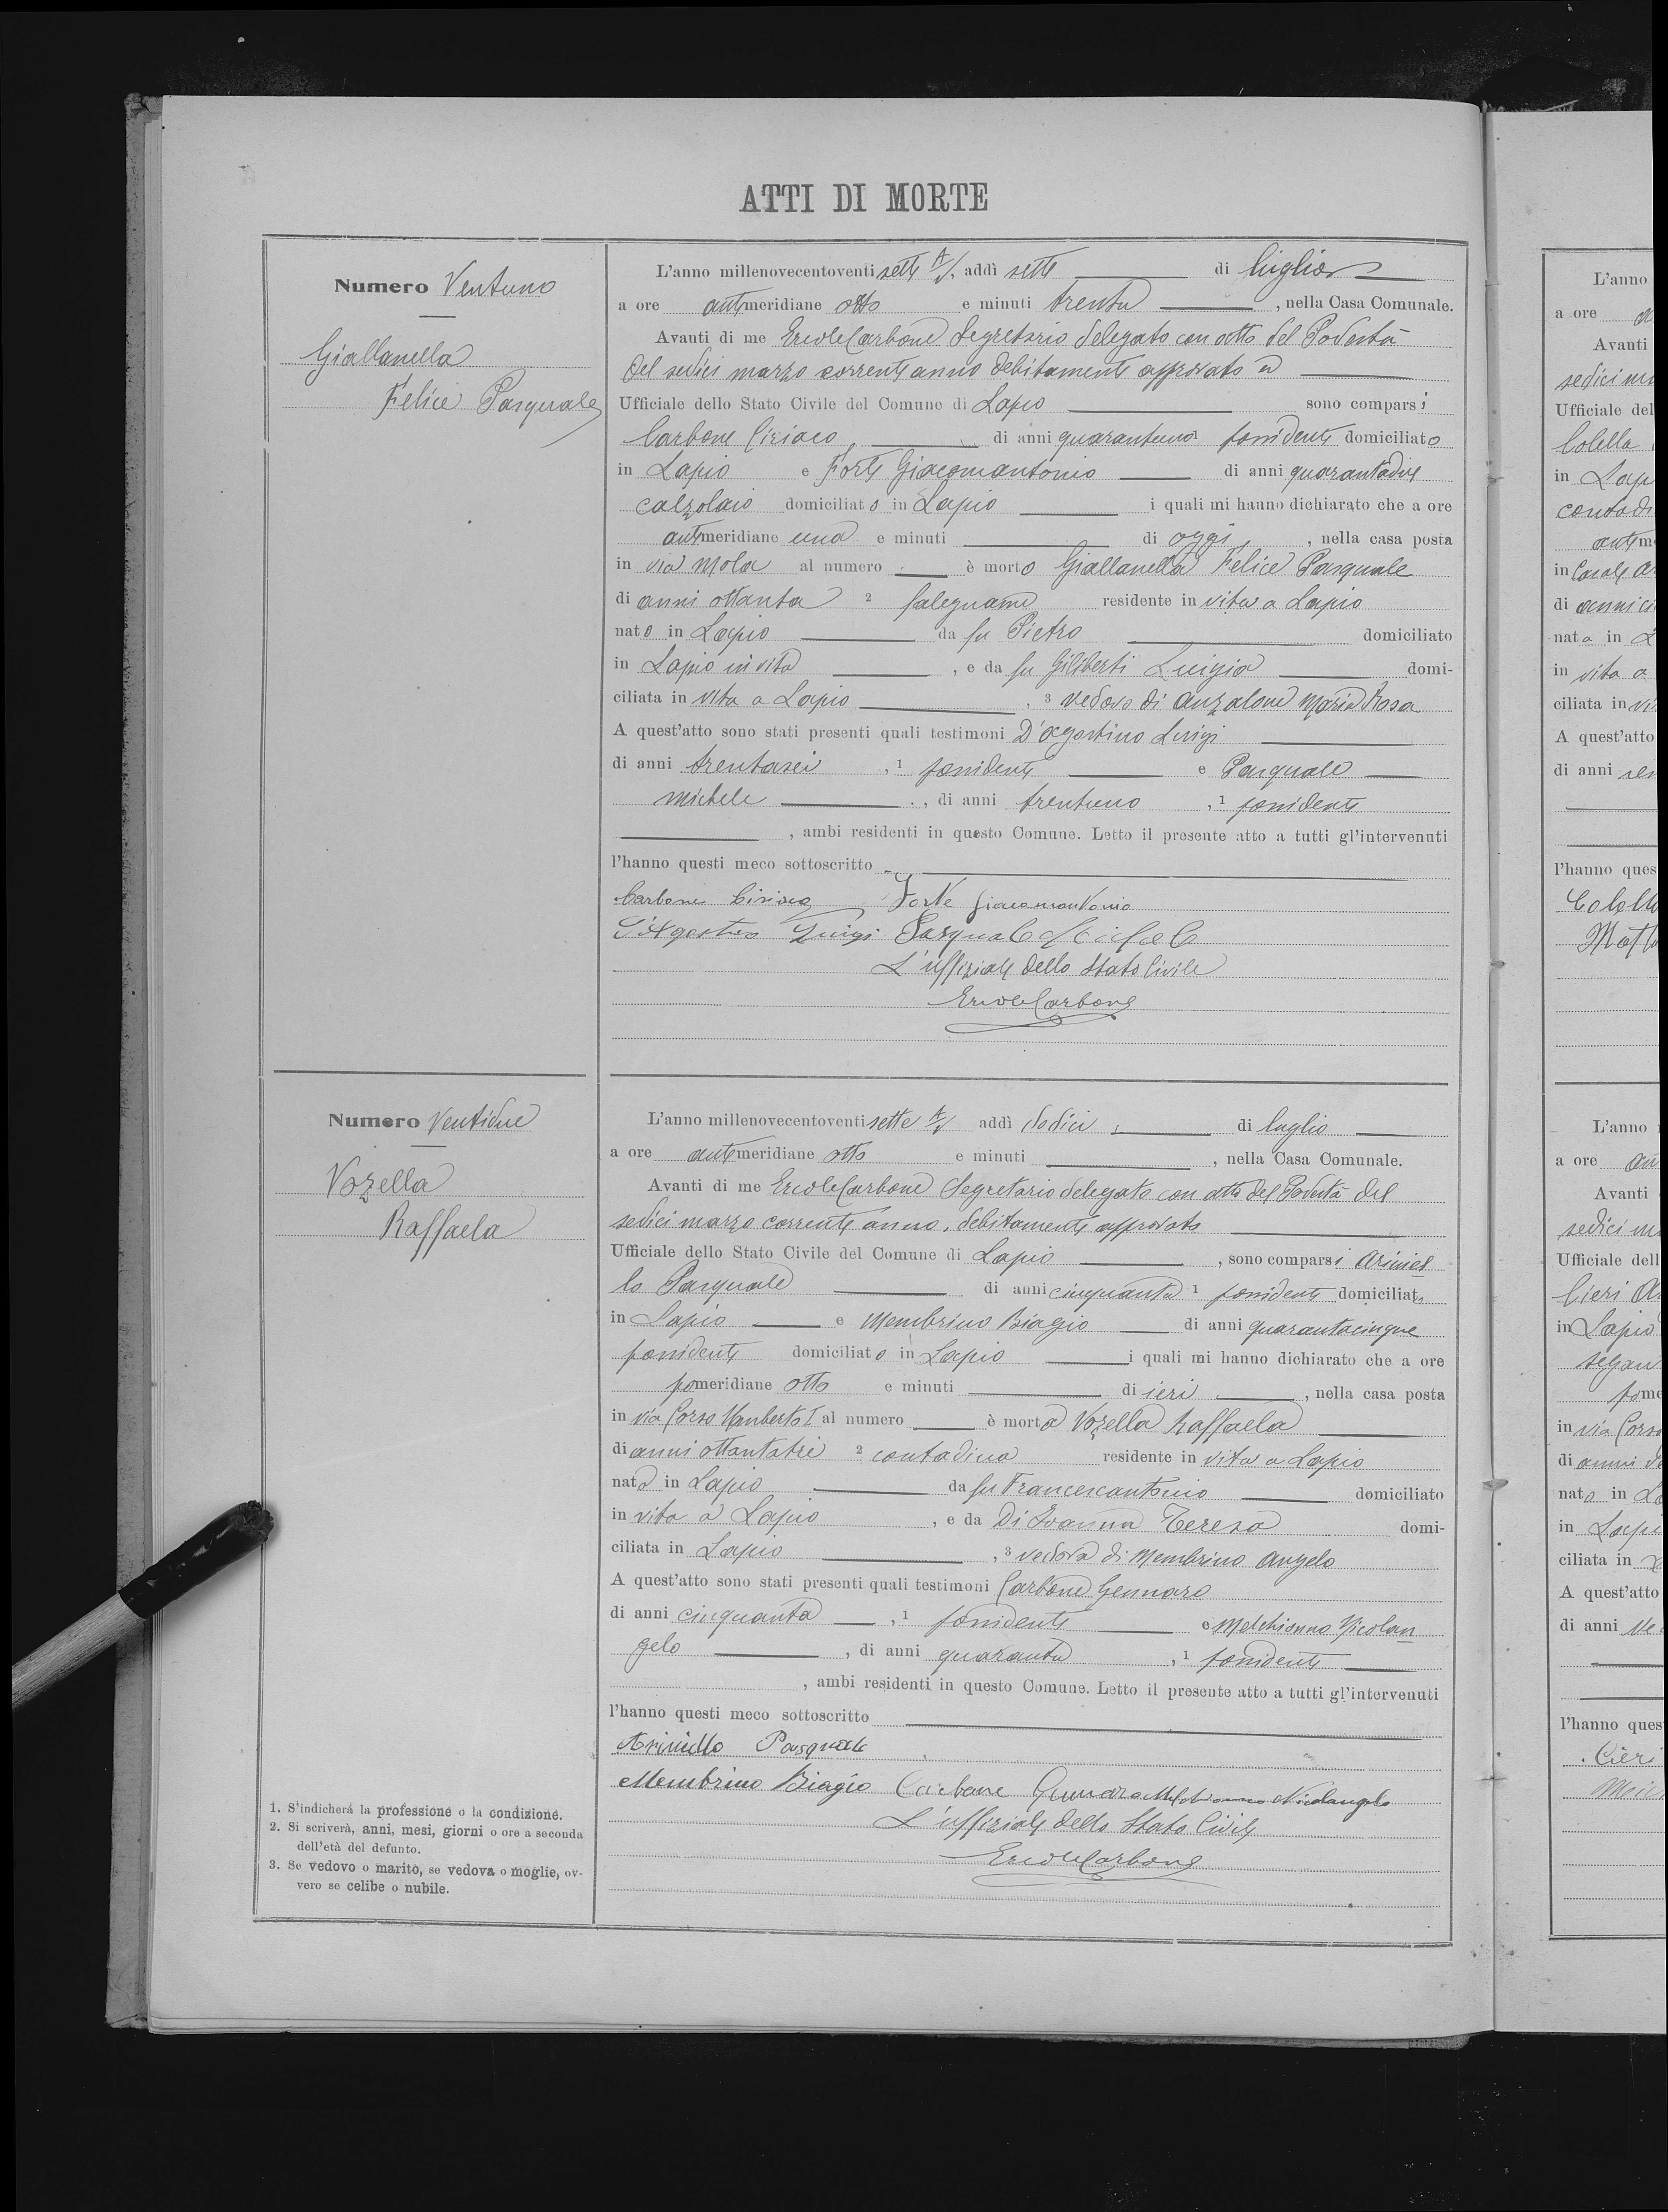 ATTI DI MORTE
Numero Ventuno
Giallanella
Felice Pasquale
L'anno millenovecentoventisette A/V, addì sette di luglio
a ore antimeridiane otto e minuti trenta, nella Casa Comunale.
Avanti di me Ercole Carbone Segretario delegato con atto del Podestà
del sedici marzo corrente anno debitamente approvato
Ufficiale dello Stato Civile del Comune di Lapio sono comparsi
Carbone Ciriaco, di anni quarantuno possidente domiciliato
in Lapio e Forte Giacomantonio di anni quarantadue
calzolaio domiciliato in Lapio i quali mi hanno dichiarato che a ore
antimeridiane una e minuti di oggi, nella casa posta
in via Mola al numero è morto Giallanella Felice Pasquale
di anni ottanta 2 falegname residente in vita a Lapio
nato in Lapio da fu Pietro domiciliato
in Lapio in vita, e da fu Giliberti Luigia domi-
ciliata in vita a Lapio, 3 vedovo di Anzalone Maria Rosa
A quest'atto sono stati presenti quali testimoni D'Agostino Luigi
di anni trentasei, 1 possidente e Pasquale
Michele, di anni trentuno, 1 possidente
, ambi residenti in questo Comune. Letto il presente atto a tutti gl'intervenuti
l'hanno questi meco sottoscritto
Carbone Ciriaco Forte Giacomantonio
D'Agostino Luigi Pasquale Michele
L'uffiziale dello Stato Civile
Ercole Carbone
Numero Ventidue
Vozella
Raffaela
L'anno millenovecentoventisette A/V addì dodici di luglio
a ore antimeridiane otto e minuti, nella Casa Comunale.
Avanti di me Ercole Carbone Segretario delegato con atto del Podestà del
sedici marzo corrente anno, debitamente approvato
Ufficiale dello Stato Civile del Comune di Lapio, sono comparsi Ariniel
lo Pasquale di anni cinquanta 1 possidente domiciliato
in Lapio e Membrino Biagio di anni quarantacinque
possidente domiciliato in Lapio i quali mi hanno dichiarato che a ore
pomeridiane otto e minuti di ieri, nella casa posta
in via Corso Umberto I al numero è morta Vozella Raffaela
di anni ottantatre 2 contadina residente in vita a Lapio
nata in Lapio da fu Francescantonio domiciliato
in vita a Lapio, e da Di Ioanna Teresa domi-
ciliata in Lapio, 3 vedova di Membrino Angelo
A quest'atto sono stati presenti quali testimoni Carbone Gennaro
di anni cinquanta, 1 possidente e Melchionno Nicolan
gelo, di anni quaranta, 1 possidente
, ambi residenti in questo Comune. Letto il presente atto a tutti gl'intervenuti
l'hanno questi meco sottoscritto
Ariniello Pasquale
Membrino Biagio Carbone Gennaro Melchionno Nicolangelo
L'uffiziale dello Stato Civile
Ercole Carbone
1. S'indicherà la professione o la condizione.
2. Si scriverà, anni, mesi, giorni o ore a seconda
dell'età del defunto.
3. Se vedovo o marito, se vedova o moglie, ov-
vero se celibe o nubile.
L'anno
a ore
Avanti
sedici
Ufficiale del
Colella
in Lapi
contadi
antim
in Casale
di anni
nata in
in vita a
ciliata in
A quest'atto
di anni
l'hanno ques
L'anno
a ore
Avanti
sedici
Ufficiale dell
Cieri
in Lapio
pome
in via Corso
di anni
nato in
in Lapi
ciliata in
A quest'atto
di anni
l'hanno ques
Cieri